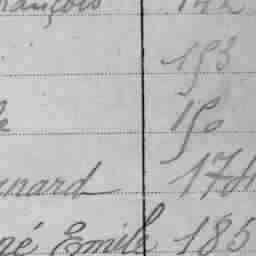 rançois 142
153
150
nard 174
né Emile 185